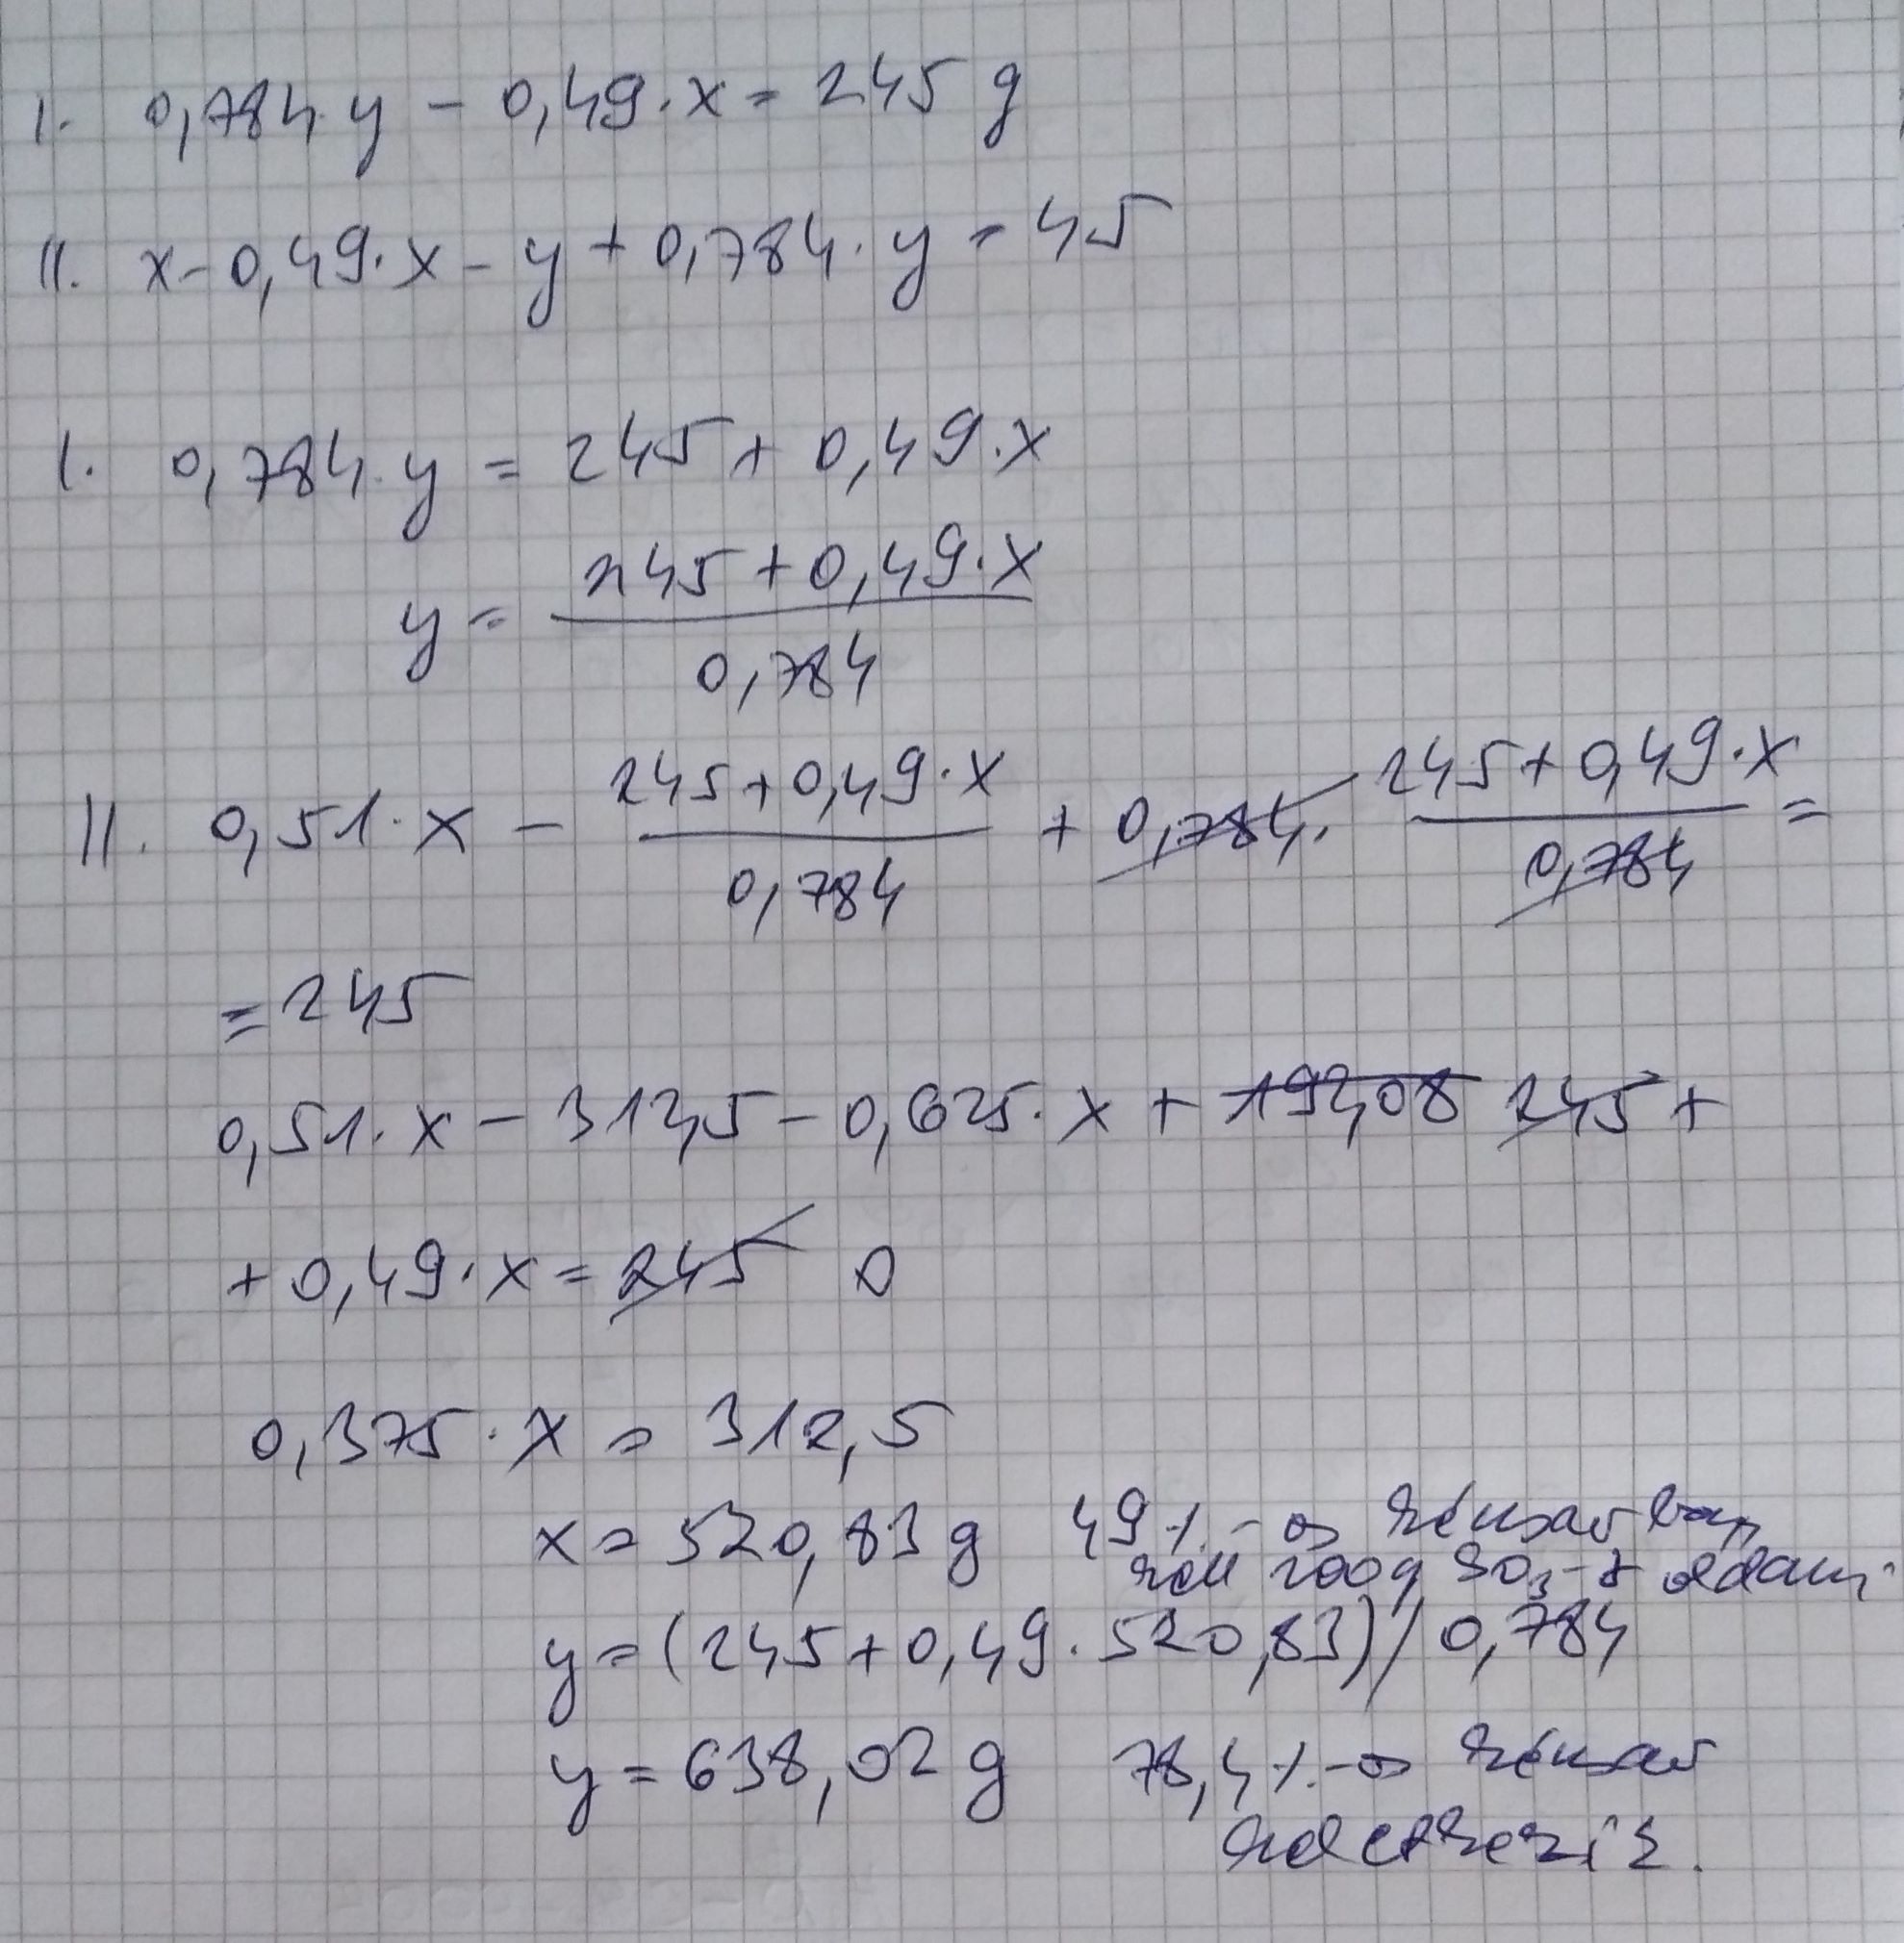 I. 0,784·y - 0,49·x = 245 g
II. x - 0,49·x - y + 0,784·y = 45
I. 0,784·y = 245 + 0,49·x
y = (245 + 0,49·x) / 0,784
II. 0,51·x - (245 + 0,49·x) / 0,784 + 0,784· (245 + 0,49·x) / 0,784 =
= 245
0,51·x - 312,5 - 0,625·x + 192,08 245 +
+ 0,49·x = 245 0
0,375·x = 312,5
x = 520,83 g 49%-os kénsavban
kell 200g SO3-t oldani.
y = (245 + 0,49·520,83) / 0,784
y = 638,02 g 78,4%-os kénsav
keletkezik.